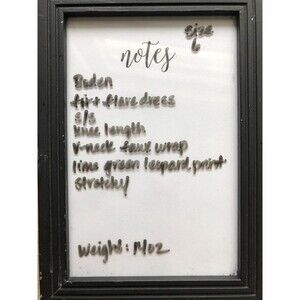 Size
6
notes
Boden
fit + flare dress
s/s
knee length
v-neck faux wrap
lime green leopard print
stretchy
Weight: 14oz